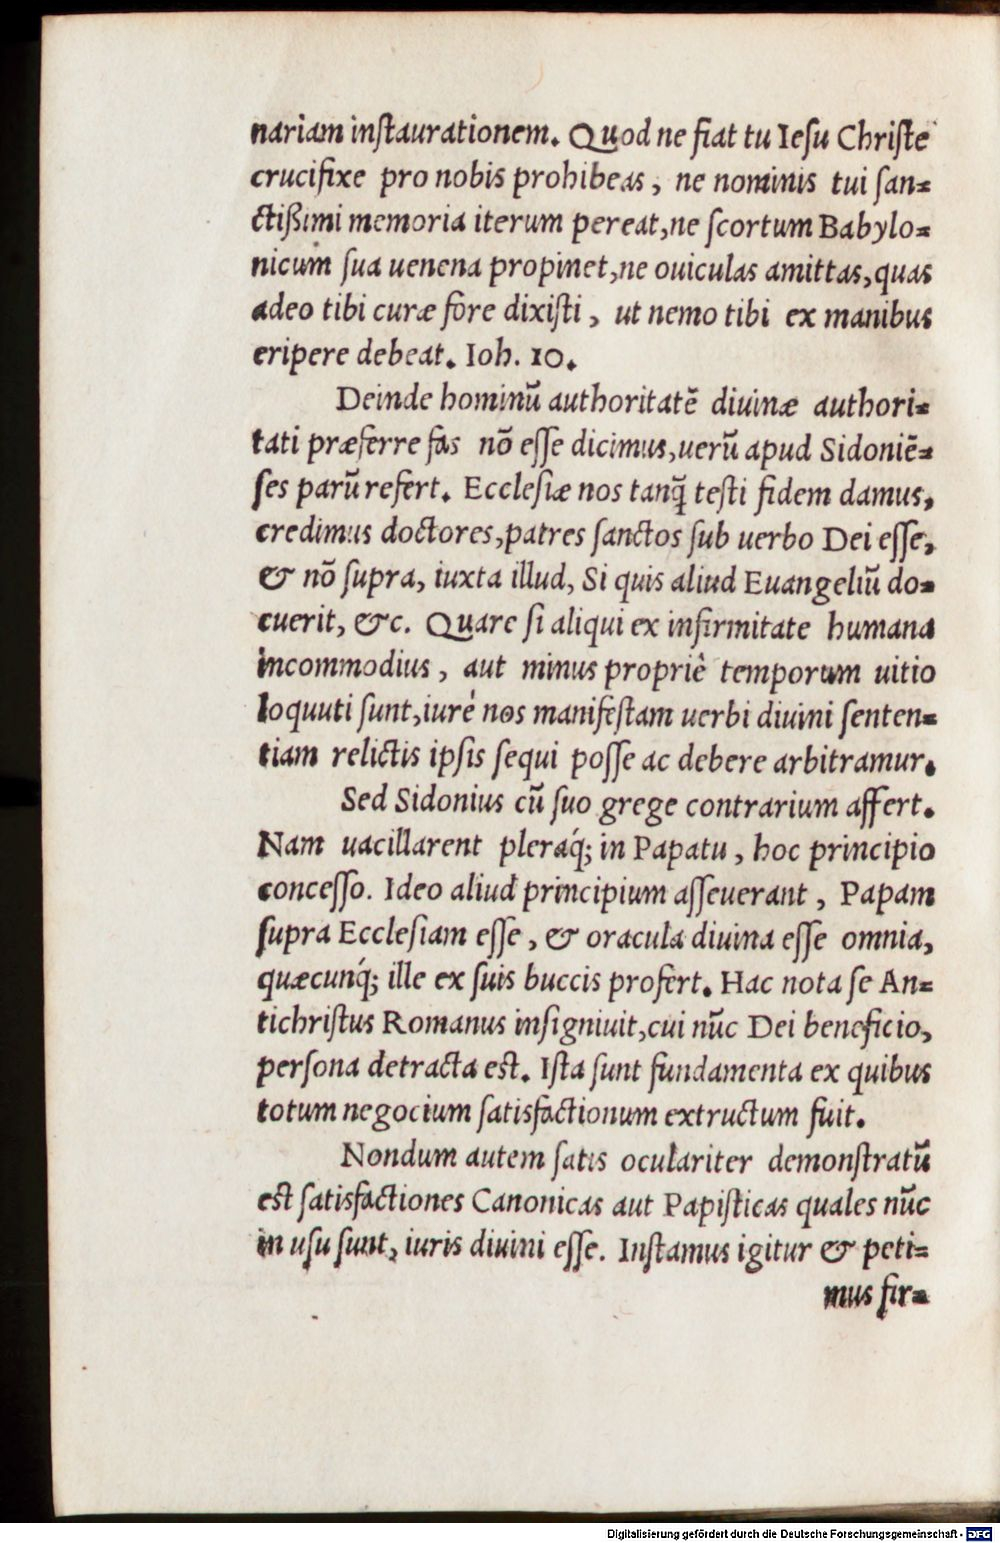 nariam inſtaurationem. Quod ne fiat tu Ieſu Chriſte
crucifixe pro nobis prohibeas, ne nominis tui ſan=
ctißimi memoria iterum pereat,ne ſcortum Babylo=
nicum ſua uenena propinet,ne ouiculas amittas,quas
adeo tibi curæ fore dixiſti, ut nemo tibi ex manibus
eripere debeat. Ioh. 10.
Deinde hominũ authoritatẽ diuinæ authori=
tati præferre fas nõ eſſe dicimus,uerũ apud Sidoniẽ=
ſes parũ refert. Eccleſiæ nos tanq̃ teſti fidem damus,
credimus doctores,patres ſanctos ſub uerbo Dei eſſe,
& nõ ſupra, iuxta illud, Si quis aliud Euangeliũ do=
cuerit, &c. Quare ſi aliqui ex infirmitate humana
incommodius, aut minus propriè temporum uitio
loquuti ſunt,iurè nos manifeſtam uerbi diuini ſenten=
tiam relictis ipſis ſequi poſſe ac debere arbitramur.
Sed Sidonius cũ ſuo grege contrarium affert.
Nam uacillarent pleraq́; in Papatu, hoc principio
conceſſo. Ideo aliud principium aſſeuerant, Papam
ſupra Eccleſiam eſſe, & oracula diuina eſſe omnia,
quæcunq́; ille ex ſuis buccis profert. Hac nota ſe An=
tichriſtus Romanus inſigniuit,cui nũc Dei beneficio,
perſona detracta eſt. Iſta ſunt fundamenta ex quibus
totum negocium ſatisfactionum extructum fuit.
Nondum autem ſatis oculariter demonſtratũ
eſt ſatisfactiones Canonicas aut Papiſticas quales nũc
in uſu ſunt, iuris diuini eſſe. Inſtamus igitur & peti=
mus fir=
Digitalisierung gefördert durch die Deutsche Forschungsgemeinschaft - DFG